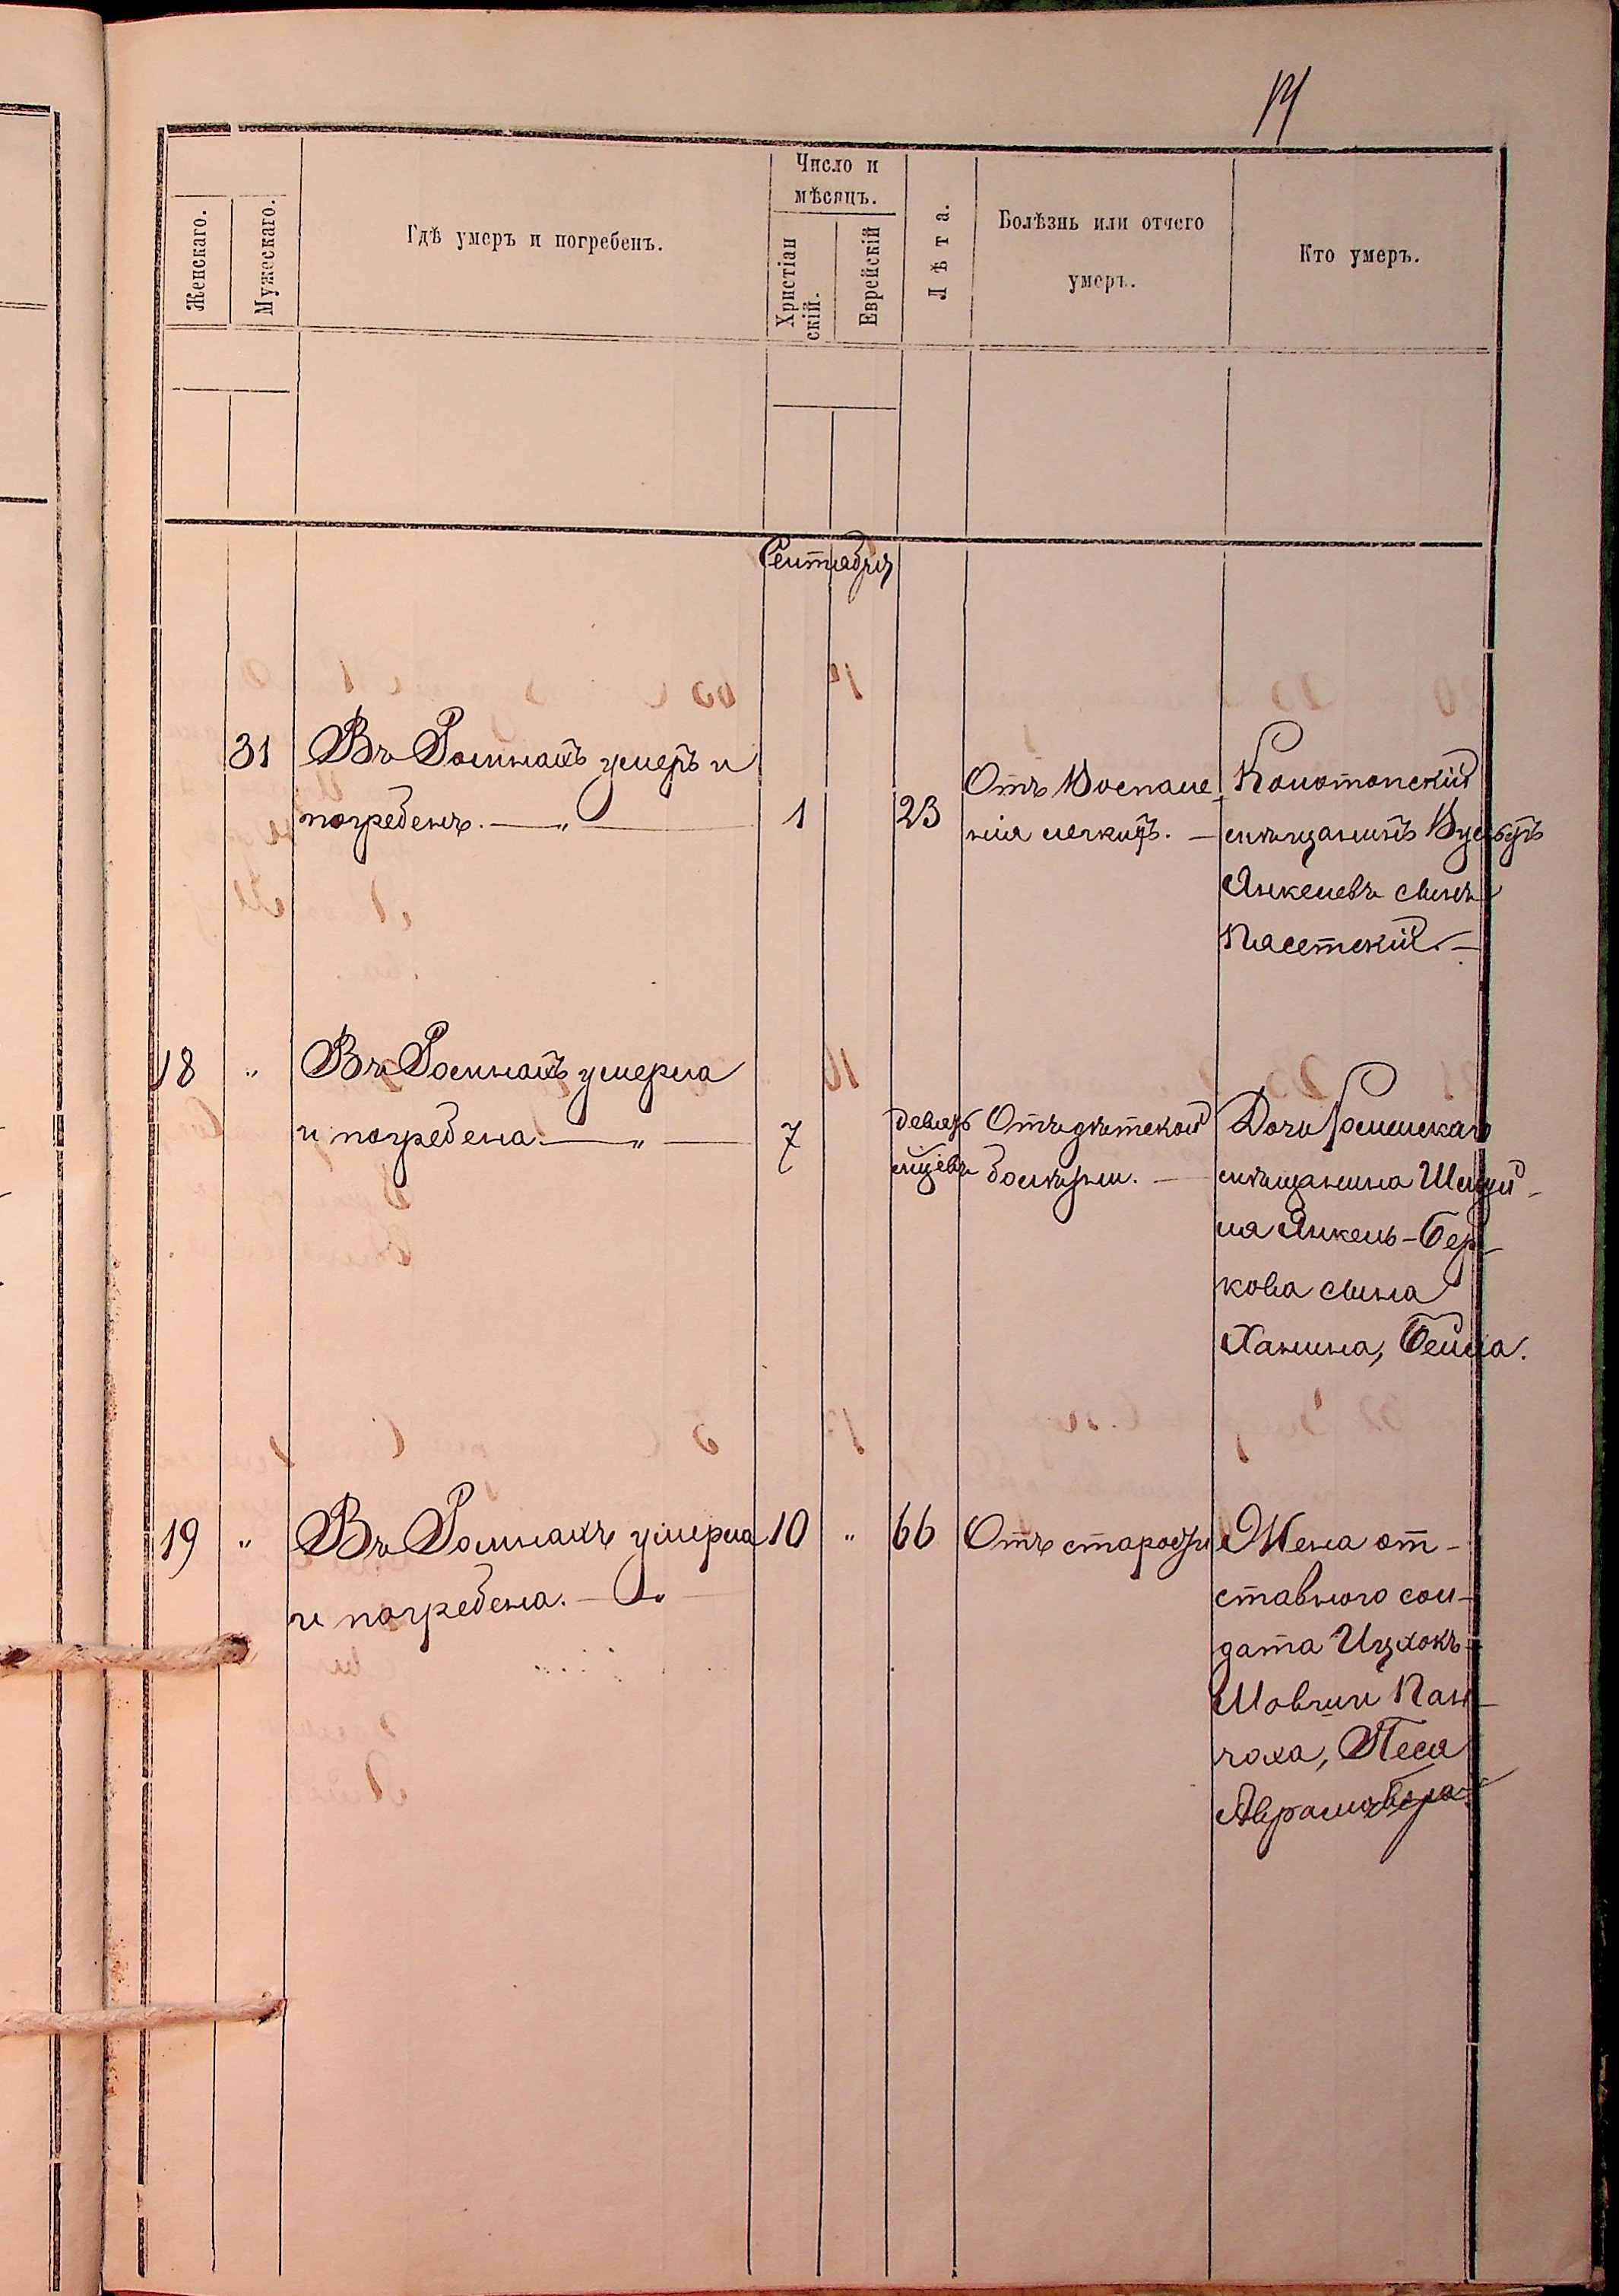 14
Женскаго.
Мужескаго.
Гдѣ умеръ и погребенъ.
Число и
мѣсяцъ.
Христіан
скій.
Еврейскій
Лѣта.
Болѣзнь или отчего
умеръ.
Кто умеръ.
Сентября
31
Въ Ромнахъ умеръ и
погребенъ. — „ —
1
23
Отъ Воспале
нія легкихъ. —
Конотопскій
мѣщанинъ
Янкелевъ сынъ
Пясетскій. —
18
„
Въ Ромнахъ умерла
и погребена. — „ —
7
девять
мѣсяцевъ
Отъ дѣтской
болѣзни. —
Дочь Роменскаго
мѣщанина
ля Янкель-Бер-
кова сына
Ханина, Бейла.
19
„
Въ Ромнахъ умерла
и погребена. — „ —
10
„
66
Отъ старости
Жена от-
ставного сол-
дата Ицхокъ-
Шовши Пан-
чоха, Песя
Абрамовна